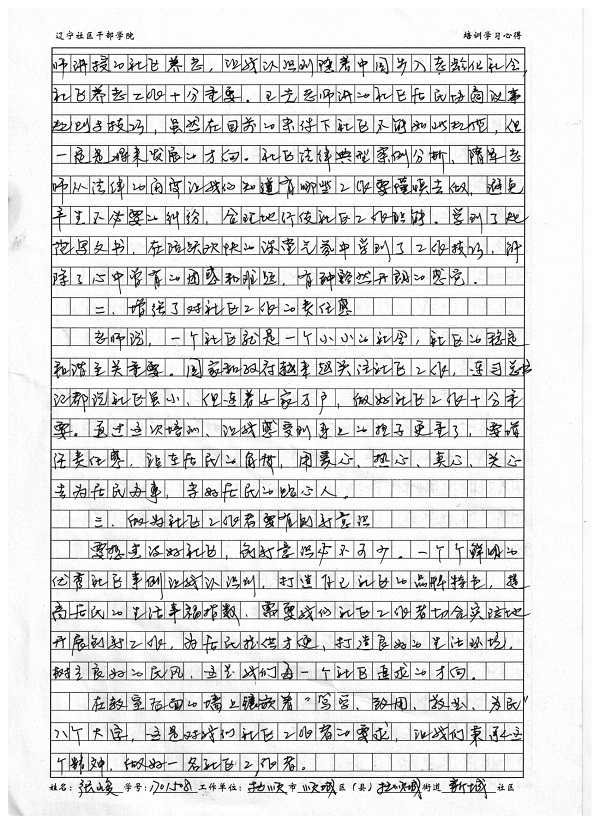 辽宁社区干部学院 培训学习心得
师讲授的社区养老，让我认识到随着中国步入老龄化社会，
社区养老工作十分重要。王老师讲的社区居民协商议事
规则与技巧，虽然在目前的条件下社区不能如此规范，但
一定是将来发展的方向。社区法律典型案例分析，隋老
师从法律的角度让我们知道有哪些工作要谨慎去做，避免
产生不必要的纠纷，合理地行使社区工作职能。学到了规
范写文书，在活跃欢快的课堂气氛中学到了工作技巧，解
除了心中曾有的困惑和难题，有种豁然开朗的感觉。
二、增强了对社区工作的责任感
老师说，一个社区就是一个小小的社会，社区的稳定
和谐至关重要。国家和政府越来越关注社区工作，连习总书
记都说社区虽小，但连着千家万户，做好社区工作十分重
要。通过这次培训，让我感受到身上的担子更重了，要增
强责任感，站在居民的角度，用爱心、热心、真心、关心
去为居民办事，当好居民的贴心人。
三、做为社区工作者要有创新意识
要想建设好社区，创新意识必不可少。一个个鲜明的
优秀社区事例让我认识到，打造自己社区的品牌特色，提
高居民的生活幸福指数，需要我们社区工作者切合实际地
开展创新工作，为居民提供方便，打造良好的生活环境，
树立良好的民风，这是我们每一个社区追求的方向。
在教室后面的墙上镶嵌着“笃学、致用、敬业、为民”
八个大字，这是对我们社区工作者的要求，让我们秉承这
个精神，做好一名社区工作者。
姓名：张 学号：1701508 工作单位：抚顺市顺城区（县）抚顺城街道新城社区